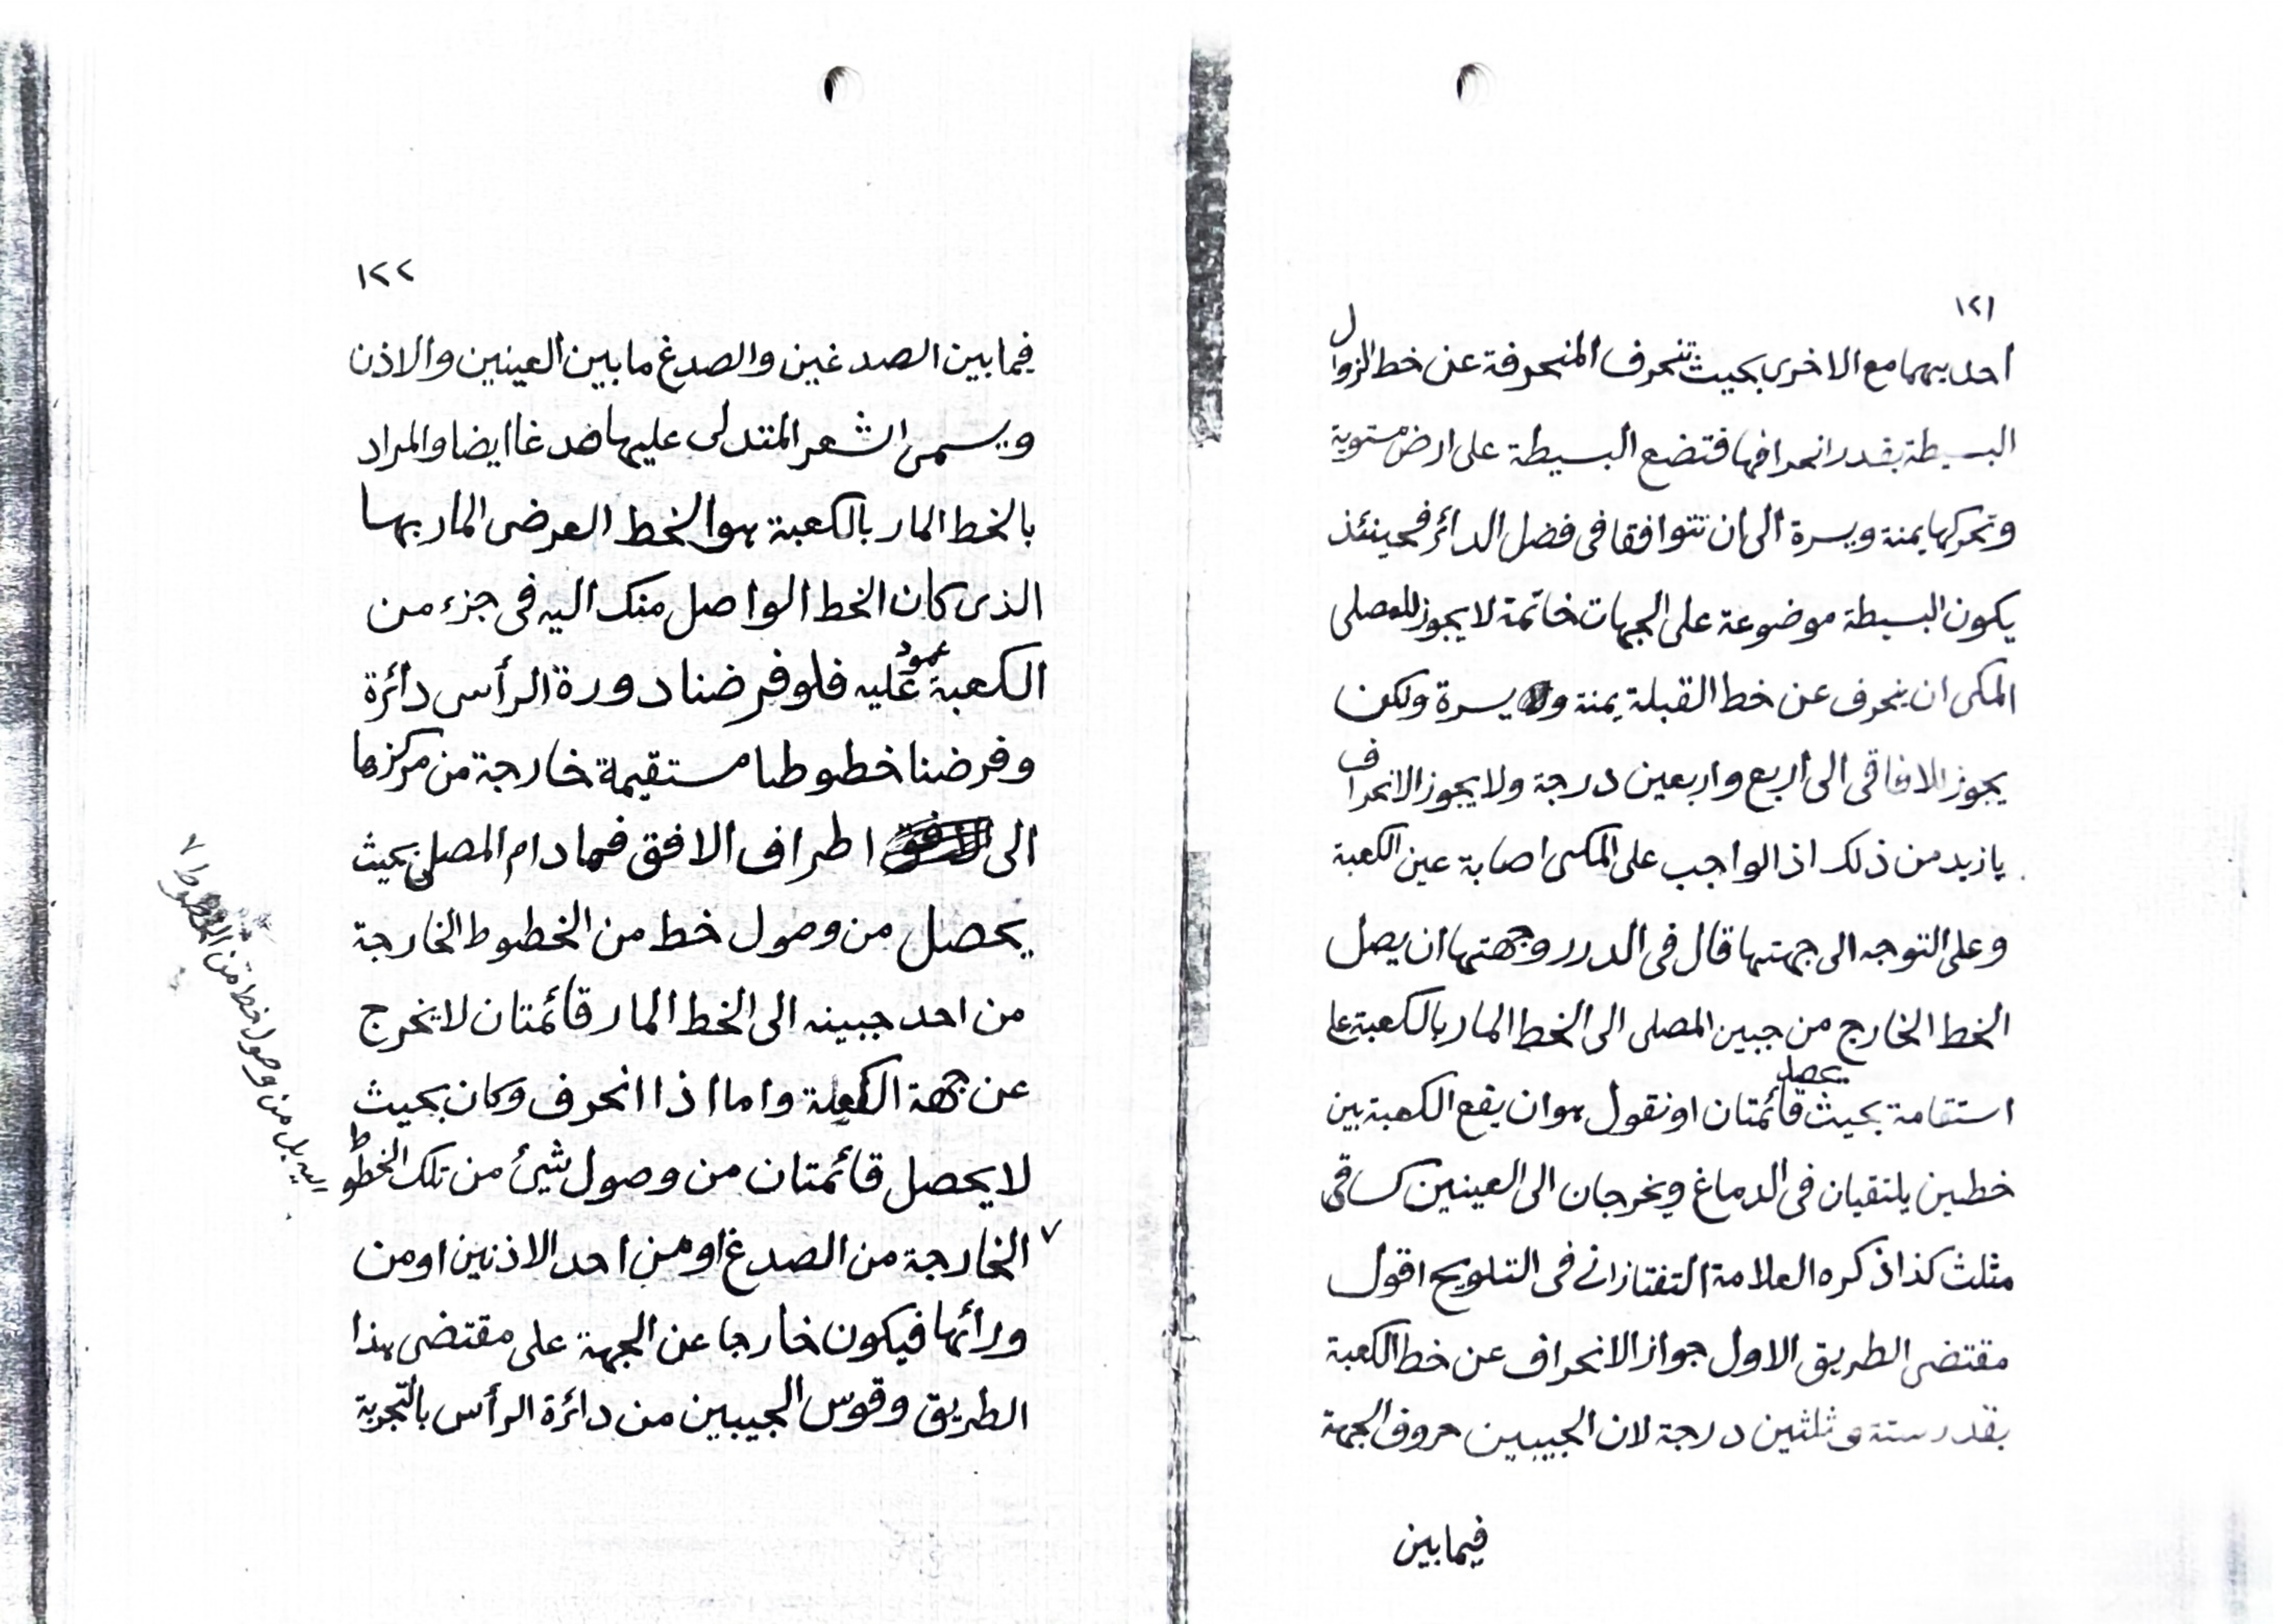 ١٢١
احديهما مع الاخرى بحيث تنحرف المنحرفة عن خط الزوال
البسيطة بقدر انحرافها فتضع البسيطة على ارض مستوية
وتحركها يمنة ويسرة الى ان تتوافقا فى فضل الدائر فحينئذ
يكون البسيطة موضوعة على الجهات خاتمة لا يجوز للمصلى
المكى ان ينحرف عن خط القبلة يمنة ولا يسرة ولكن
يجوز للافاقى الى اربع واربعين درجة ولا يجوز الانحراف
بازيد من ذلك اذ الواجب على المكى اصابة عين الكعبة
وعلى التوجه الى جهتها قال فى الدرر وجهتها ان يصل
الخط الخارج من جبين المصلى الى الخط المار بالكعبة على
استقامة بحيث يحصل قائمتان او نقول هو ان يقع الكعبة بين
خطين يلتقيان فى الدماغ ويخرجان الى العينين كساقى
مثلث كذا ذكره العلامة التفتازانى فى التلويح اقول
مقتضى الطريق الاول جواز الانحراف عن خط الكعبة
بقدر ستة وثلثين درجة لان الجبيبين حروف الجبهة
فيما بين
١٢٢
فيما بين الصدغين والصدغ ما بين العينين والاذن
ويسمى الشعر المتدلى عليها صدغا ايضا والمراد
بالخط المار بالكعبة هو الخط العرضى المار بها
الذى كان الخط الواصل منك اليه فى جزء من
الكعبة عمود عليه فلو فرضنا دورة الرأس دائرة
وفرضنا خطوطا مستقيمة خارجة من مركزها
الى اطراف الافق فما دام المصلى بحيث
يحصل من وصول خط من الخطوط الخارجة
من احد جبينه الى الخط المار قائمتان لا يخرج
عن جهة الكعبة واما اذا انحرف وكان بحيث
لا يحصل قائمتان من وصول شئ من تلك الخطوط
الخارجة من الصدغ او من احد الاذنين او من
ورائها فيكون خارجا عن الجهة على مقتضى هذا
الطريق وقوس الجبيبين من دائرة الرأس بالتجربة
اليه بل من وصول خط من الخطوط